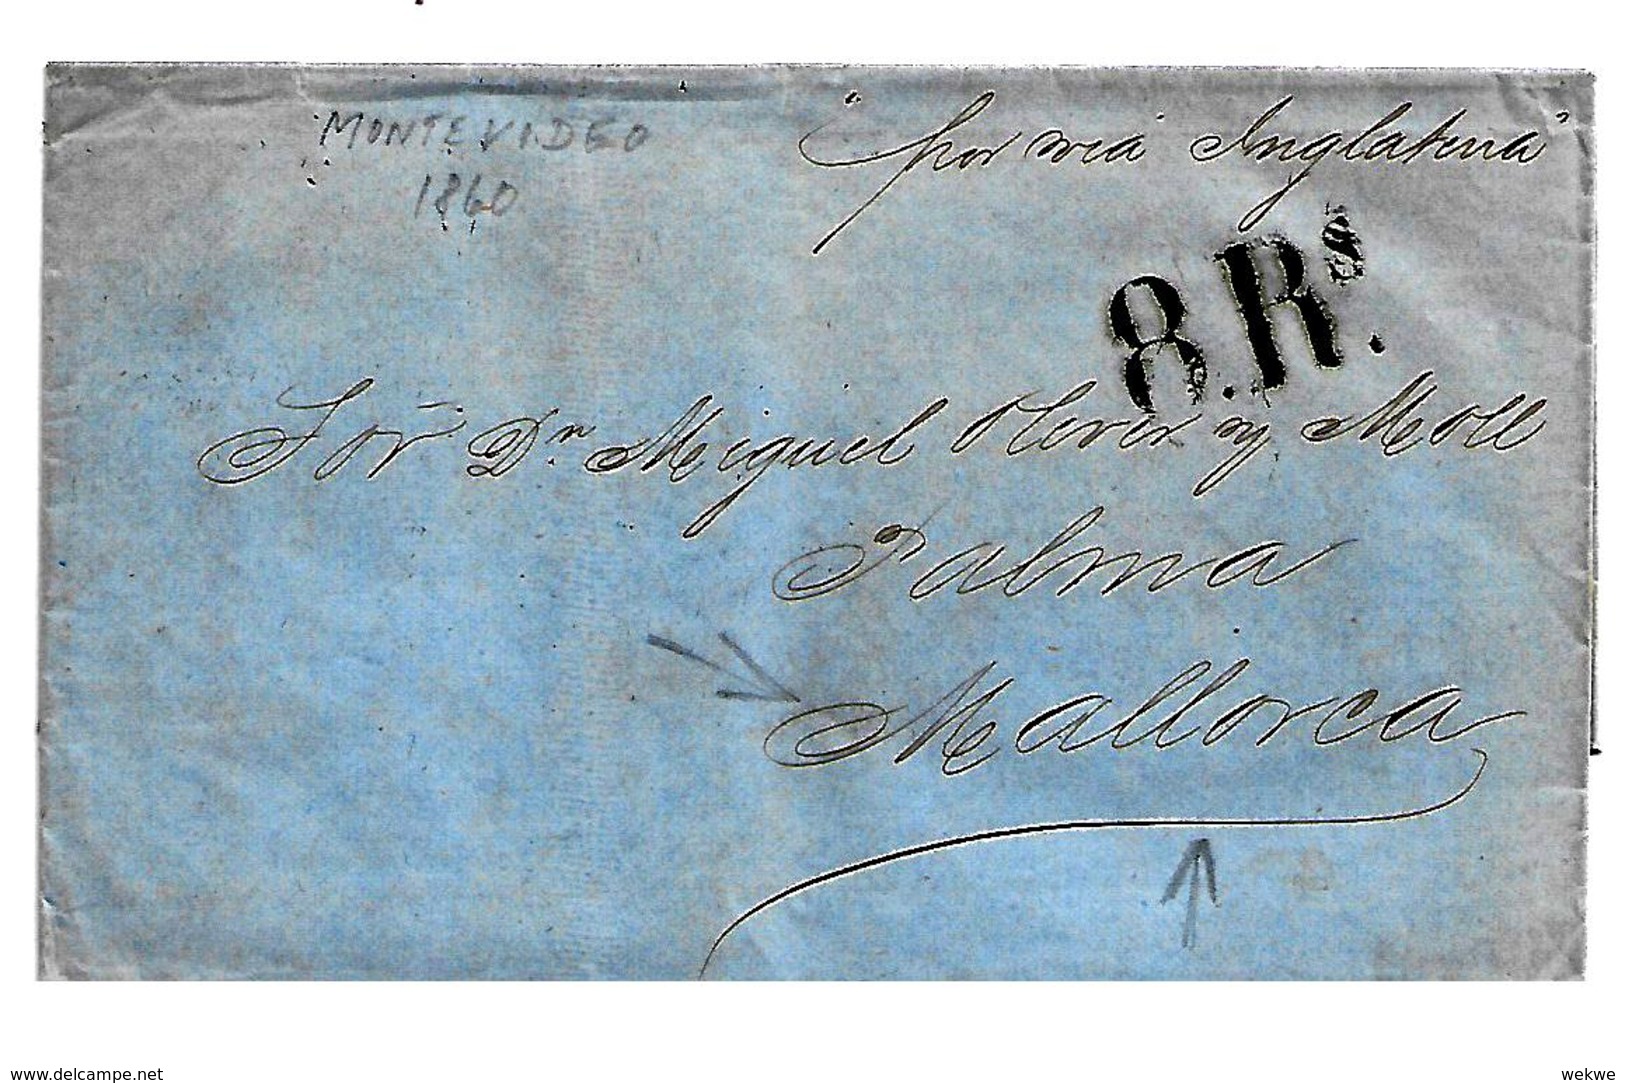 MONTEVIDEO
1860
"por via Inglaterra"
8.Rs.
Sor Dn Miguel Oliver y Moll
Palma
Mallorca
www.delcampe.net
wekwe